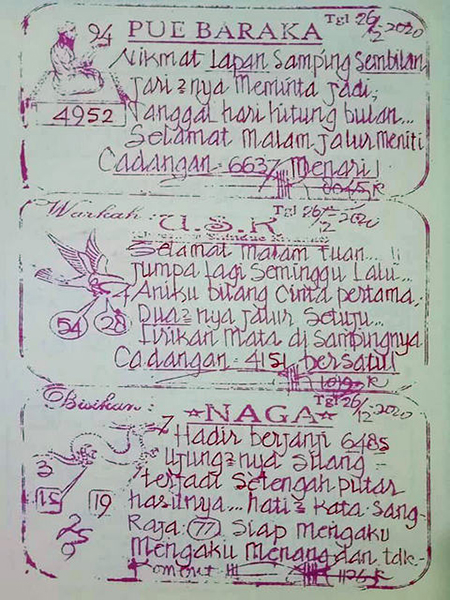 94 PUE BARAKA Tgl 26/12-2020
Nikmat Lapan Samping Sembilan
Jari2nya Meminta jadi;
4952
Tanggal hari hitung bulan...
Selamat malam jalur meniti
Cadangan= 6637 Menari
Warkah: U.S.K Tgl 26/12-2020
Selamat malam Tuan...!!
Jumpa lagi Seminggu Lalu...
Aniku bilang Cinta pertama,
54 28
Dua2nya jalur Setuju...
Lirikan Mata di Sampingnya
Cadangan= 4151 bersatu
Bisikan: NAGA Tgl 26/12-2020
7 Hadir berjanji 6485
Ujung2nya Silang=
3
terjadi Setengah putar
15 19
hasilnya... hati2 kata Sang-
Raja (77) Siap Mengaku
25
9
Mengaku Menang dan tdk-